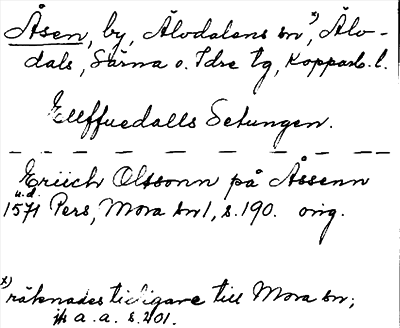 Åsen, by, Älvdalens sn x), Älv-
dals, Särna o. Idre tg, Kopparb. l.
Elffuedalls Setungen.
Eriich Olssonn på Åssenn
u.d.
1571 Pers, Mora sn 1, s. 190. orig.
x) räknades tidigare till Mora sn;
jfr a. a. s. 201.